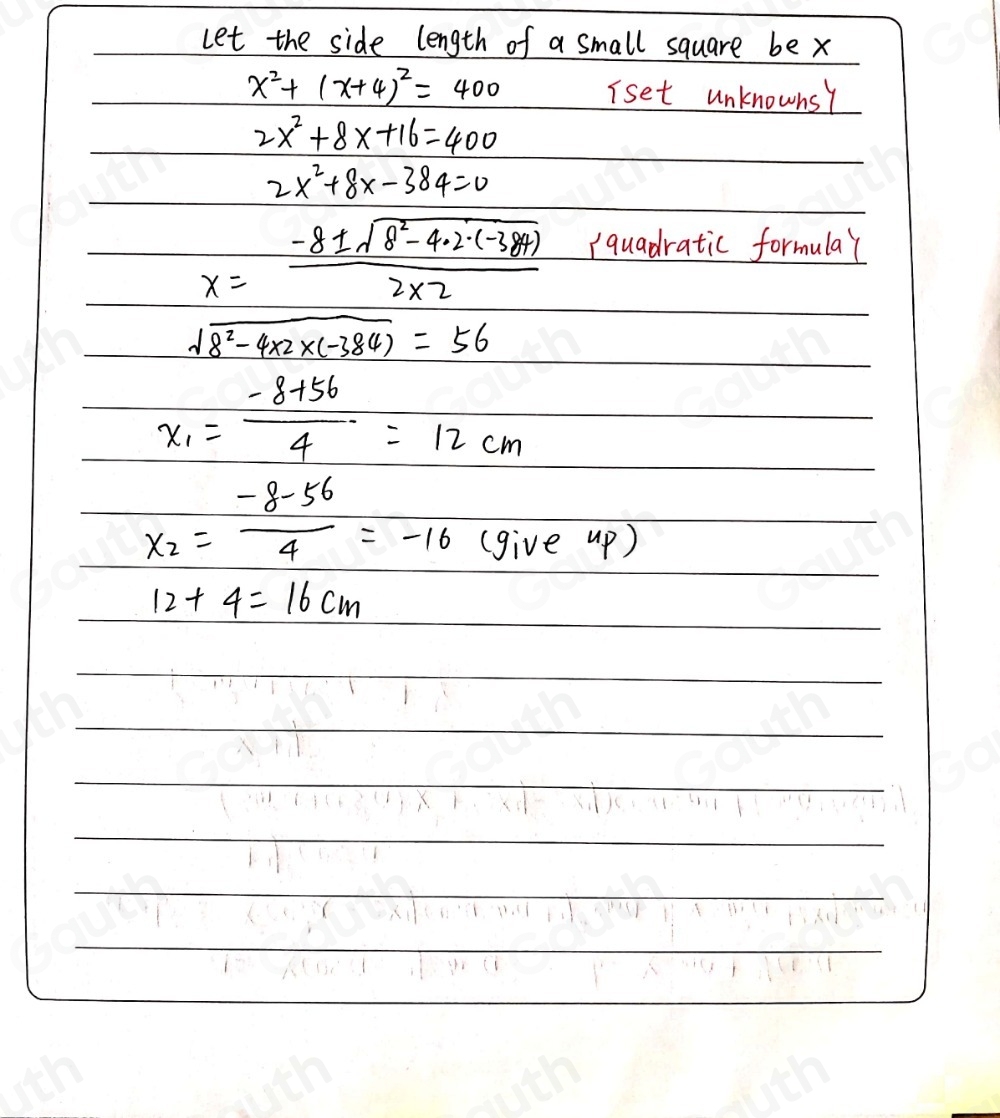 Let the side length of a small square be x
x² + (x+4)² = 400 {set unknowns}
2x² + 8x + 16 = 400
2x² + 8x - 384 = 0
x = (-8 ± √(8² - 4·2·(-384))) / (2×2) {quadratic formula}
√(8² - 4×2×(-384)) = 56
x₁ = (-8+56) / 4 = 12 cm
x₂ = (-8-56) / 4 = -16 (give up)
12 + 4 = 16 cm
Gauth